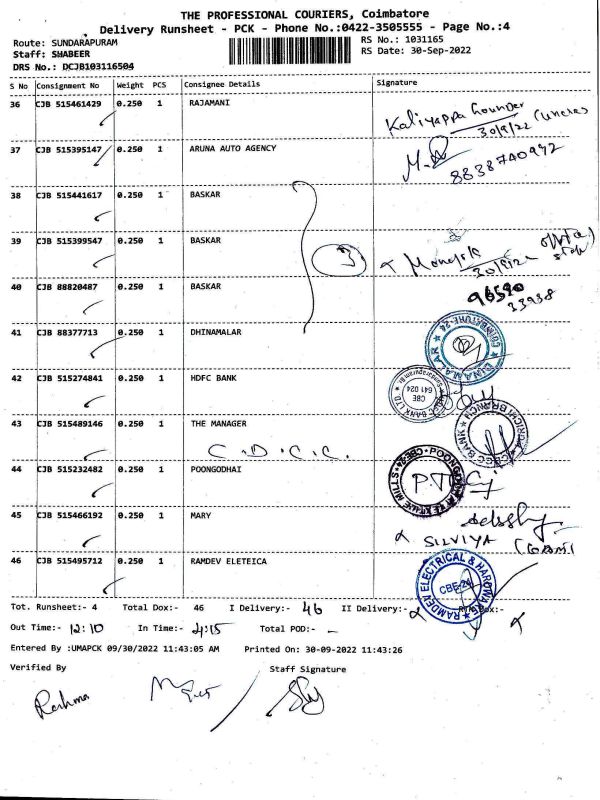 THE PROFESSIONAL COURIERS, Coimbatore
Delivery Runsheet - PCK - Phone No.:0422-3505555 - Page No.:4
Route: SUNDARAPURAM
RS No.: 1031165
Staff: SHABEER
RS Date: 30-Sep-2022
DRS No.: DCJB103116504
S No Consignment No Weight PCS Consignee Details Signature
36 CJB 515461429 0.250 1 RAJAMANI
Kaliyappa Gounder
30/9/22
37 CJB 515395147 0.250 1 ARUNA AUTO AGENCY
8838740972
38 CJB 515441617 0.250 1 BASKAR
39 CJB 515399547 0.250 1 BASKAR
3
30/9/22
40 CJB 88820487 0.250 1 BASKAR
96590
33938
41 CJB 88377713 0.250 1 DHINAMALAR
COIMBATORE-24
DINAMALAR
42 CJB 515274841 0.250 1 HDFC BANK
BANK LTD
CBE
641 024
43 CJB 515489146 0.250 1 THE MANAGER
C.D.C.C.
BANK
BRANCH
44 CJB 515232482 0.250 1 POONGODHAI
MILLS CBE-24
P.T.
45 CJB 515466192 0.250 1 MARY
SILVIYA
46 CJB 515495712 0.250 1 RAMDEV ELETEICA
RAMDEV ELECTRICAL & HARDWARE
CBE-24
Tot. Runsheet:- 4 Total Dox:- 46 I Delivery:- 46 II Delivery:-
Out Time:- 12:10 In Time:- 4:15 Total POD:- -
Entered By :UMAPCK 09/30/2022 11:43:05 AM Printed On: 30-09-2022 11:43:26
Verified By Staff Signature